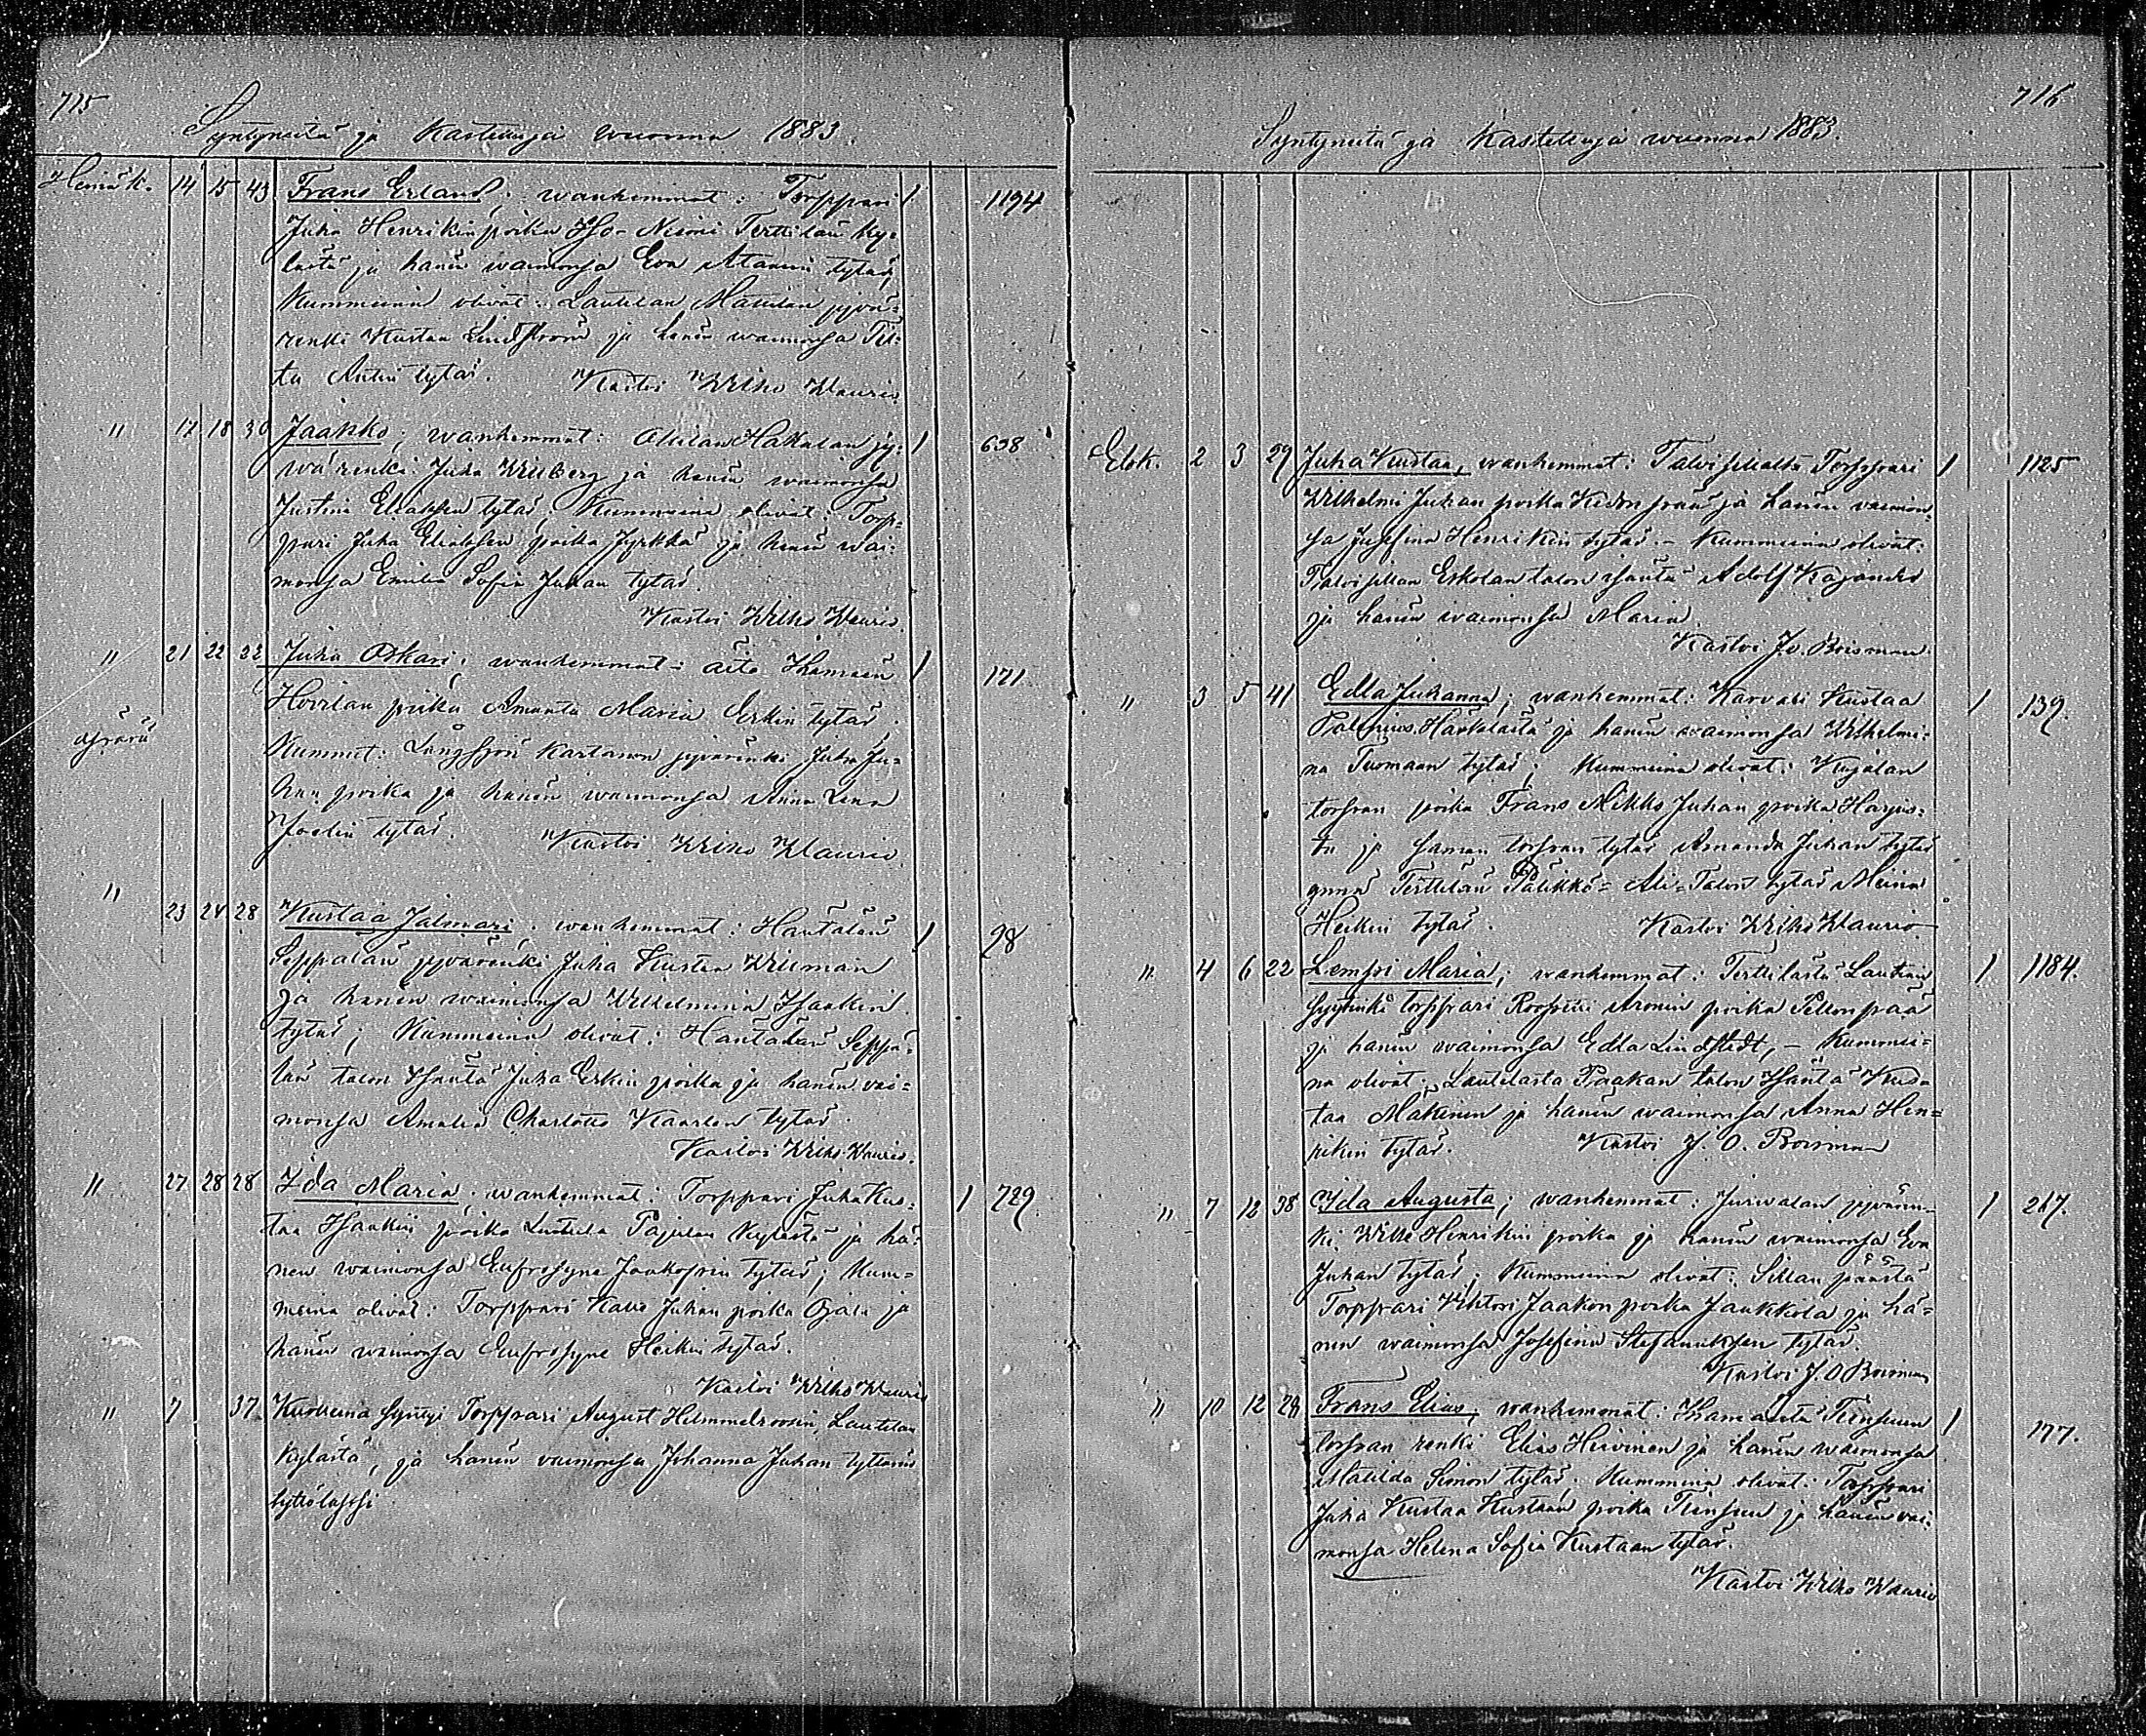 715
Syntyneitä ja Kastetuja wuonna 1883.
Heinäk. 14 15 43 Frans Erland; wanhemmat: Torppari 1 1194
Juha Henrikin poika Iso-Niemi Terttilän ky-
lästä ja hänen waimonsa Eva tytär,
Kummeina olivat: Lautelan Mattilan jyvä-
renki Kustaa Lindström ja hänen waimonsa
Antin tytär. Kastoi Wilho Waurio
" 17 18 30 Jaakko; wanhemmat: Hakalan jy- 1 638
wärenki Juha Wiberg ja hänen waimonsa
Justina Eliaksen tytär, Kummeina olivat: Torp-
pari Juha Eliaksen poika Jyrkkä ja hänen wai-
monsa Emilia Sofia Juhan tytär.
Kastoi Wilho Waurio.
" 21 22 22 Juha Oskari; wanhemmat: äitö Ihamaan 1 171
Hovilan piika Amanta Maria Erkin tytär.
Kummit: Långsjön Kartanon jyvärenki Juha Ju-
han poika ja hänen waimonsa Anna Lena
Joelin tytär. Kastoi Wilho Waurio.
" 23 24 28 Kustaa Jalmari; wanhemmat: Hantalan 1 98
Seppälän jyvärenki Juha Kustaa Wiiman
ja hänen waimonsa Wilhelmiina Isaakin
tytär; Kummeina olivat: Hantalan Seppä-
län talon Isäntä Juha Erkin poika ja hänen vai-
monsa Amalia Charlotta Kaarlen tytär.
Kastoi Wilho Waurio.
" 27 28 28 Ida Maria; wanhemmat: Torppari Juha Kus- 1 789
taa Isaakin poika Pajulan Kylästä ja hä-
nen waimonsa Eufrosyne Jaakopin tytär; Kum-
meina olivat: Torppari Juhan poika Ojala ja
hänen waimonsa Eufrosyne Heikin tytär.
Kastoi Wilho Waurio
" 7 37 Kuolleena syntyi Torppari August Helmmelroosin, Lautelan
Kylästä, ja hänen vaimonsa Johanna Juhan tyttären
tyttölapsi
716
Syntyneitä ja Kastettuja wuonna 1883.
Elok. 2 3 29 Juha Kustaa; wanhemmat: Talvisillalta Torppari 1 1125
Wilhelmi Juhan poika ja hänen vaimon-
sa Josefina Henrikin tytär. - Kummeina olivat:
Talvisillan Eskolan talon isäntä Adolf Kajander
ja hänen waimonsa Maria.
Kastoi J. O. Boisman.
" 3 5 41 Edla Juhanna; wanhemmat: Karvari Kustaa 1 139.
Palenius Härkälästä ja hänen waimonsa Wilhelmi-
na Tuomaan tytär; Kummeina olivat: Kujalan
torpan poika Frans Mikko Juhan poika Harjus-
ta ja saman torpan tytär Amanda Juhan tytär
ynnä Terttilän Pälikkö-Ali-Talon tytär Miina
Heikin tytär. Kastoi Wilho Waurio
" 4 6 22 Lempi Maria; wanhemmat: Terttilästä Lautian 1 1184.
torppari Aronin poika Pellonpää
ja hänen waimonsa Edla Lindstedt, - Kummei-
na olivat: Lautelasta Paakan talon Isäntä Kus-
taa Mäkinen ja hänen waimonsa Anna Hen-
rikin tytär. Kastoi J. O. Boisman
" 7 12 38 Ida Augusta; wanhemmat: Juwalan jyvären- 1 267.
ki Wille Henrikin poika ja hänen waimonsa Eva
Juhan tytär; Kummeina olivat: Sillan päästä
Torppari Wihtori Jaakon poika Jaakkola ja hä-
nen waimonsa Josefina Stefanuksen tytär.
Kastoi J. O. Boisman
" 10 12 28 Frans Elias; wanhemmat: Ihamaalta Tiensuun 1 177.
torpan renki Elias Hirvinen ja hänen waimonsa
Matilda Simon tytär. Kummeina olivat: Torppari
Juha Kustaa Kustaan poika Tiensuu ja hänen vai-
monsa Helena Sofia Kustaan tytär.
Kastoi Wilho Waurio